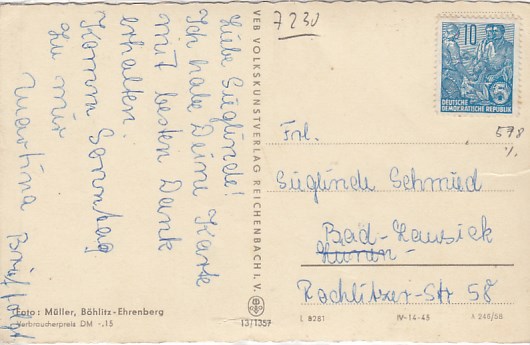 Liebe Sieglinde!
Ich habe Deine Karte
mit besten Dank
erhalten.
Komm Sonntag
zu mir
Martina
Foto: Müller, Böhlitz-Ehrenberg
Verbraucherpreis DM -.15
VEB VOLKSKUNSTVERLAG REICHENBACH I. V.
13/1357
7230
10
5
DEUTSCHE
DEMOKRATISCHE REPUBLIK
578
Frl.
Sieglinde Schmied
Bad-Lausick
Rochlitzer-Str 58
L 8281
IV-14-45
A 246/58